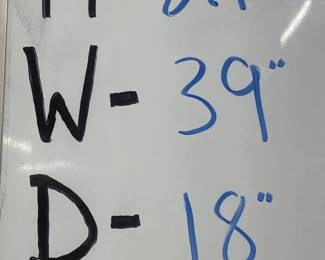 W- 39"
D- 18"